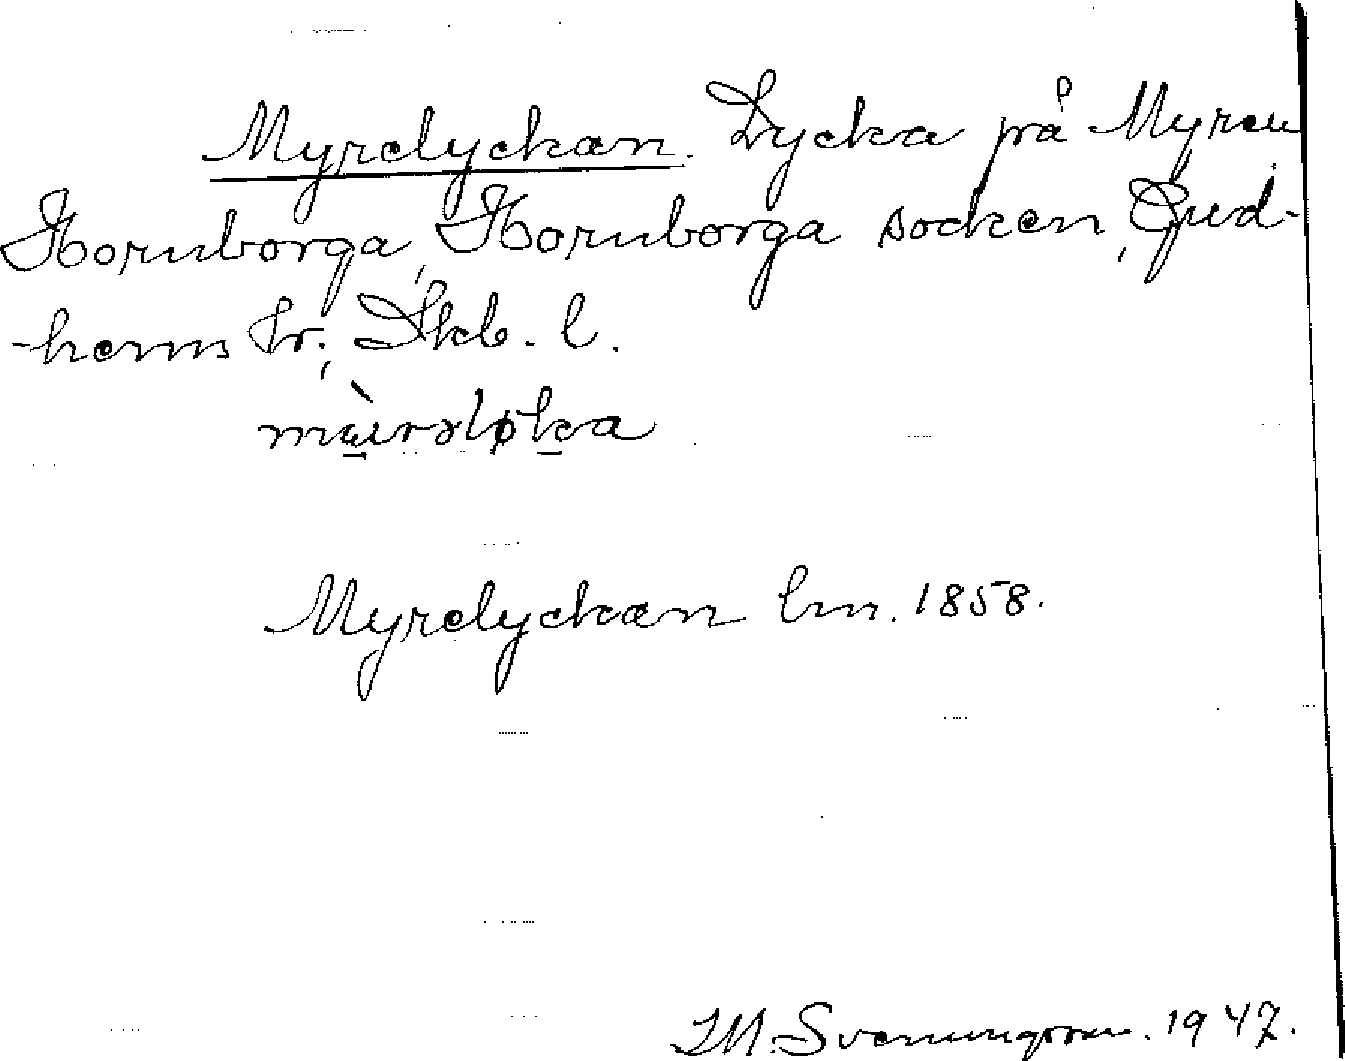 Myrelyckan. Lycka på Myren
Hornborga, Hornborga socken, Gud-
-hems hr., Skb. l.
Myrelyckan lm. 1858.
I. M. Svenungsson. 1947.